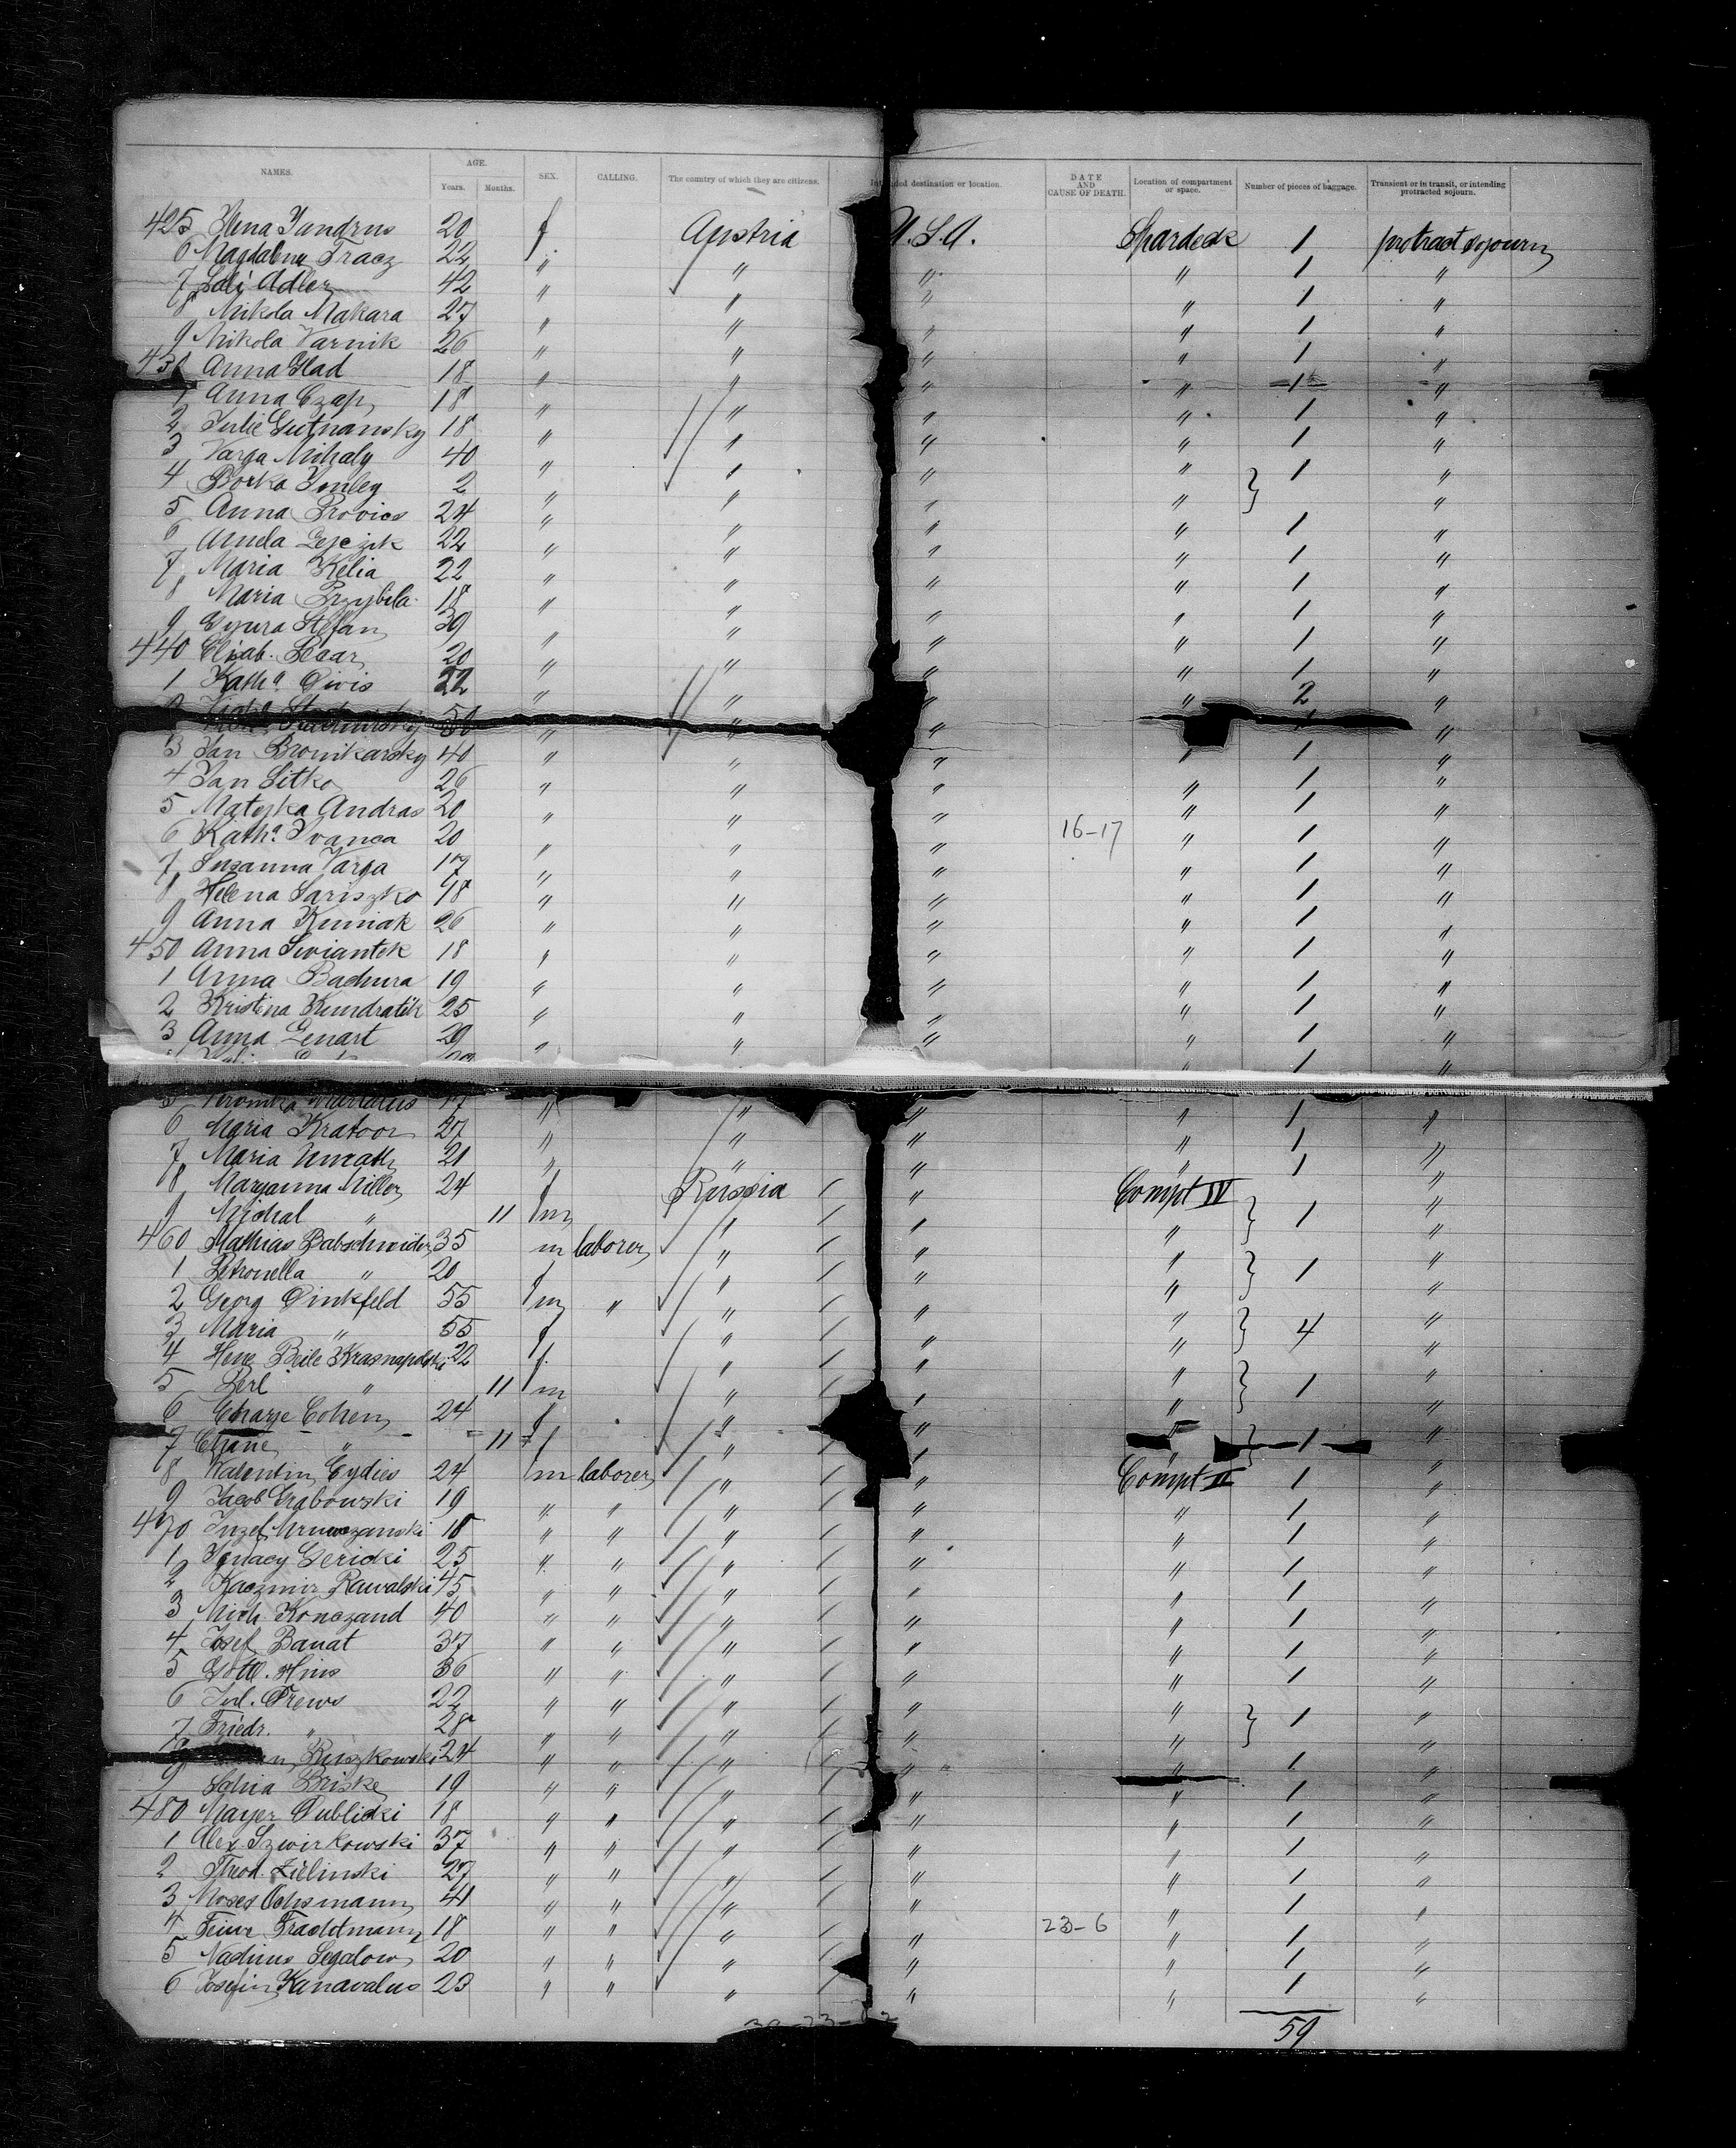 NAMES. AGE. Years. Months. SEX. CALLING. The country of which they are citizens. Intended destination or location. DATE AND CAUSE OF DEATH. Location of compartment or space. Number of pieces of baggage. Transient or in transit, or intending protracted sojourn.
425 20 f Austria U.S.A. Spardeck 1 protract sojourn
6 Magdalena Tracz 22 " " " " 1 "
7 Adler 42 " " " " 1 "
8 Mikola Makara 27 " " " " 1 "
9 Nikola Varnik 26 " " " " 1 "
430 Anna Glad 18 " " " " 1 "
1 Anna Czap 18 " " " " 1 "
2 Julie Gutnansky 18 " " " " 1 "
3 Varga Mihaly 40 " " " " 1 "
4 Borka 2 " " " " "
5 Anna 24 " " " " 1 "
6 22 " " " " 1 "
7 Maria Kelia 22 " " " " 1 "
8 Maria Przybila 18 " " " " 1 "
9 Gyura Stefan 39 " " " " 1 "
440 Elisab. 20 " " " " 1 "
1 Katha Divis 22 " " " " 2 "
2 50 " " " "
3 Jan Bronikarsky 40 " " " " 1 "
4 Jan Sitko 26 " " " " 1 "
5 Matyka Andras 20 " " " " 1 "
6 Katha Ivanca 20 " " " 16-17 " 1 "
7 Suzanna Varga 17 " " " " 1 "
8 Helena Sariszko 18 " " " " 1 "
9 Anna Kuniak 26 " " " " 1 "
450 Anna Swiantek 18 " " " " 1 "
1 Anna Bachura 19 " " " " 1 "
2 Kristina Kundratik 25 " " " " 1 "
3 Anna Genart 29 " " " " 1 "
5 " " " " 1 "
6 Maria Kratoor 27 " " " " 1 "
7 Maria 21 " " " " 1 "
8 Maryanna Miller 24 f Russia " Compt IV "
9 Michal " 11 m " " " 1 "
460 Mathias Babschneider 35 m laborer " " " "
1 Petronella " 20 f " " " 1 "
2 Georg Dinkfeld 55 m " " " " "
3 Maria " 55 f " " " 4 "
4 Beile Krasnopolski 22 f " " " "
5 Berl " 11 m " " " 1 "
6 Cohen 24 f " " "
7 " 11 f " " 1 "
8 Valentin Eydies 24 m laborer " " Compt II 1 "
9 Jacob Grabowski 19 " " " " " 1 "
470 Juzef 18 " " " " " 1 "
1 Ignacy Gericki 25 " " " " " 1 "
2 Kaczmir Rawalski 45 " " " " " 1 "
3 Mich Konczand 40 " " " " " 1 "
4 Josef Banat 37 " " " " " 1 "
5 Gottl. Hins 36 " " " " " 1 "
6 Jul. Drews 22 " " " " " "
7 Friedr. " 28 " " " " " 1 "
8 Ruszkowski 24 " " " " " 1 "
9 Briske 19 " " " " " 1 "
480 Mayer Dublicki 18 " " " " " 1 "
1 Alex Szwirkowski 37 " " " " " 1 "
2 Theod. Zielinski 27 " " " " " 1 "
3 Moses Ochsmann 41 " " " " " 1 "
4 Trachtmann 18 " " " " 23-6 " 1 "
5 Segalow 20 " " " " " 1 "
6 Kanavalus 23 " " " " " 1 "
59